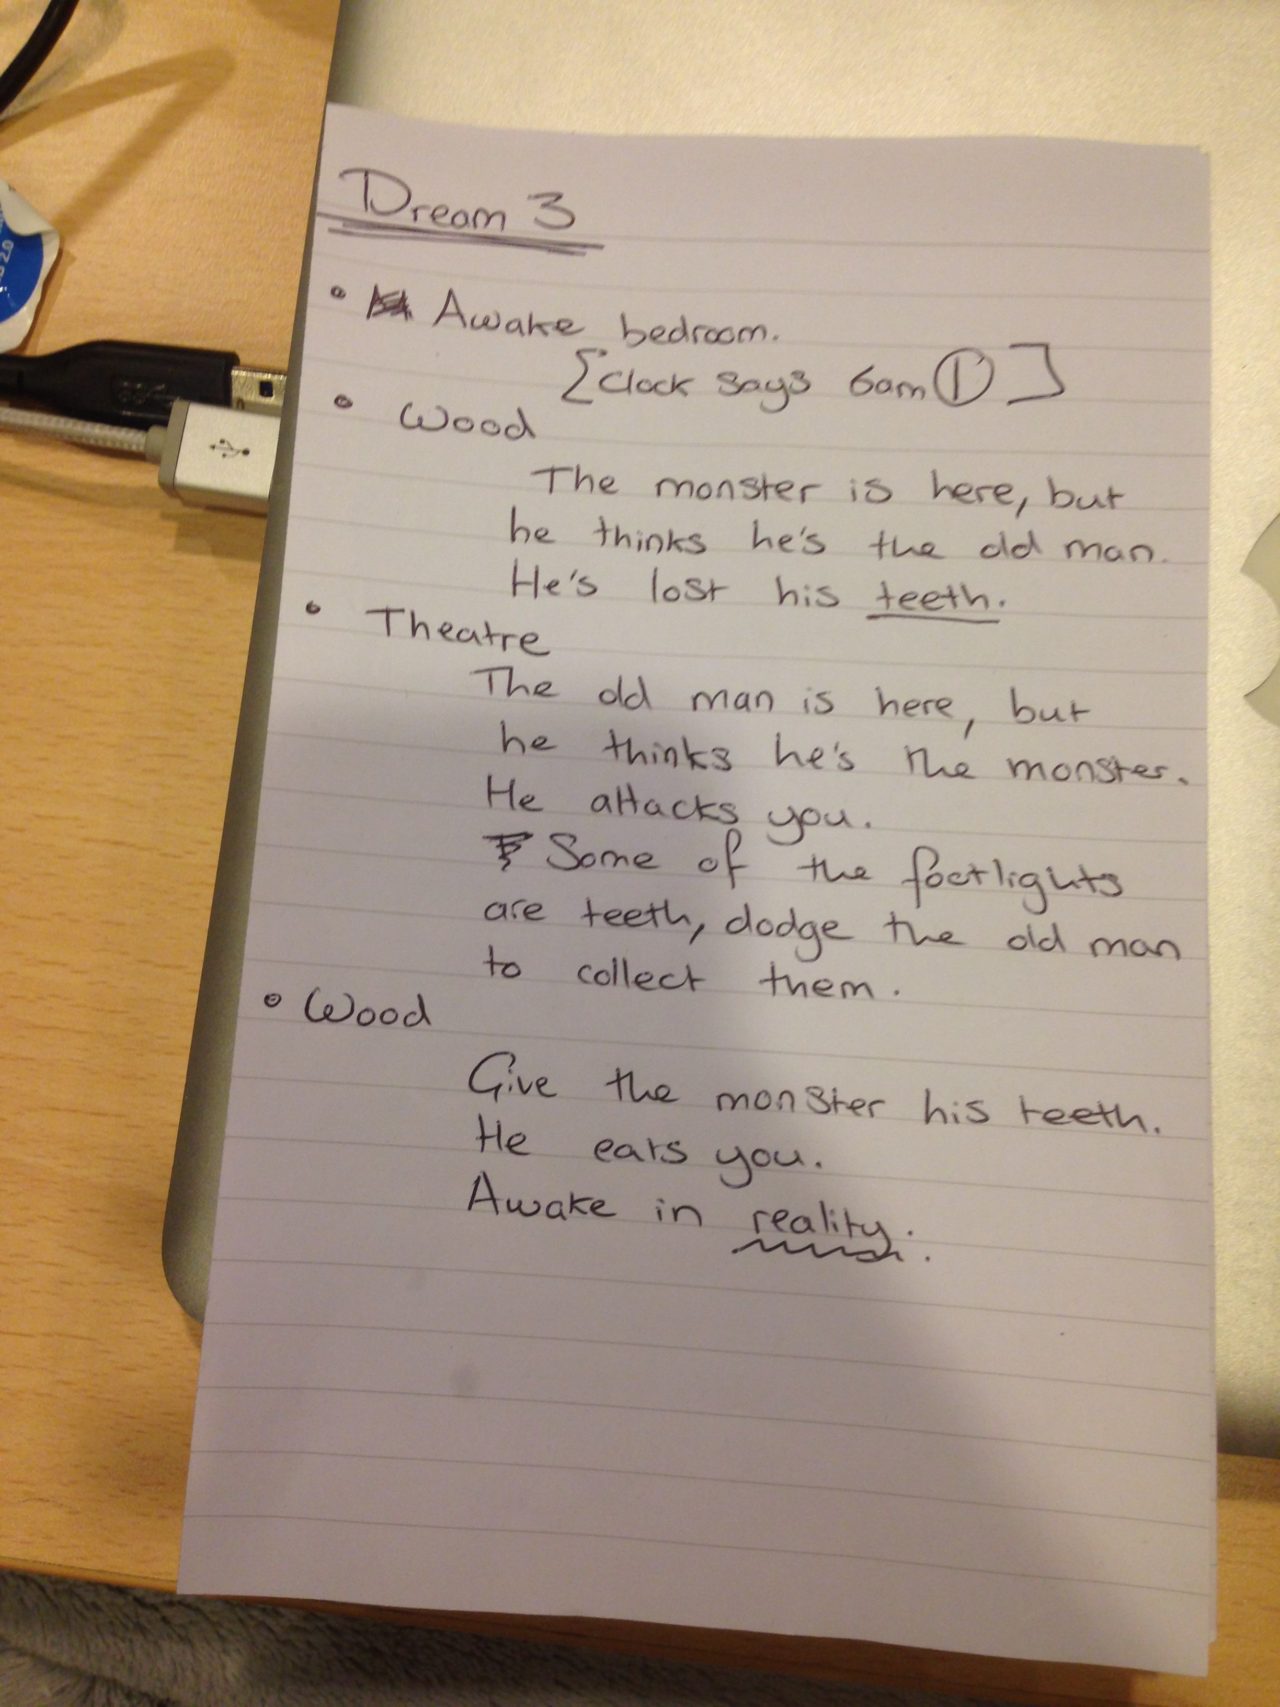 Dream 3
• Awake bedroom.
[Clock says 6am ①]
• Wood
The monster is here, but
he thinks he's the old man.
He's lost his teeth.
• Theatre
The old man is here, but
he thinks he's the monster.
He attacks you.
Some of the footlights
are teeth, dodge the old man
to collect them.
• Wood
Give the monster his teeth.
He eats you.
Awake in reality.
2.0